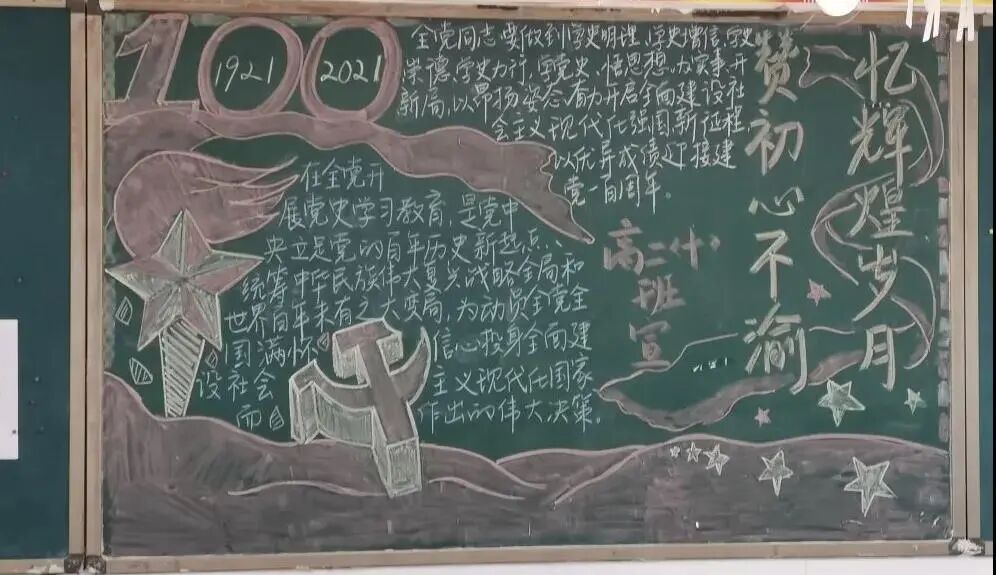 100
1921 2021
全党同志要做到学史明理、学史增信、学史
崇德、学史力行，学党史、悟思想、办实事、开
新局，以昂扬姿态奋力开启全面建设社
会主义现代化强国新征程，
以优异成绩迎接建
党一百周年。
忆辉煌岁月
赞初心不渝
在全党开
展党史学习教育，是党中
央立足党的百年历史新起点、
统筹中华民族伟大复兴战略全局和
世界百年未有之大变局，为动员全党全
国满怀信心投身全面建
设社会主义现代化国家
而作出的伟大决策。
高二(十)
班
宣